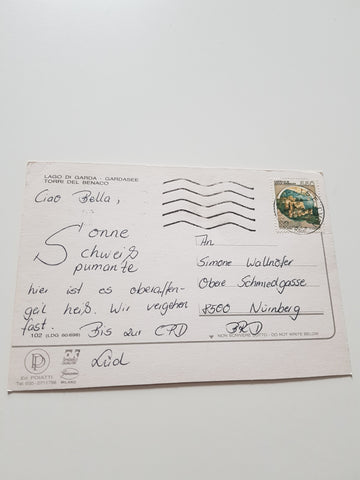 LAGO DI GARDA - GARDASEE
TORRI DEL BENACO
Ciao Bella,
Sonne
Schweiß
Spumante
hier ist es oberaffen-
geil heiß. Wir vergehen
fast. Bis zur CPD
Lüd
An
Simone Wallnöfer
Obere Schmiedgasse
8500 Nürnberg
BRD
102 (LDG 60/698)
NON SCRIVERE SOTTO - DO NOT WRITE BELOW
Ed. POIATTI
MILANO